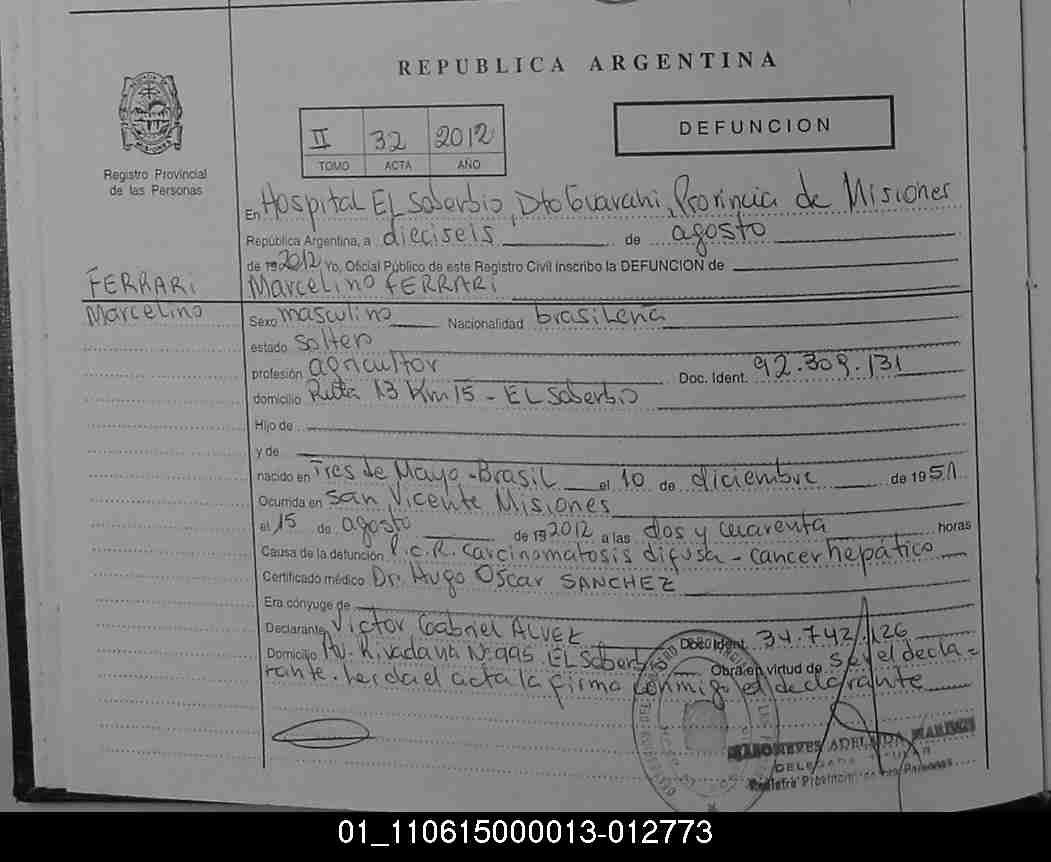 REPUBLICA ARGENTINA
II 32 2012
TOMO ACTA AÑO
DEFUNCION
Registro Provincial
de las Personas
En Hospital EL Soberbio, Dto Guarani, Provincia de Misiones
República Argentina, a dieciseis de agosto
de 19 2012 Yo, Oficial Público de este Registro Civil inscribo la DEFUNCION de
FERRARI Marcelino FERRARI
Marcelino Sexo masculino Nacionalidad brasileña
estado soltero
profesión agricultor Doc. Ident. 92.309.131
domicilio Ruta 13 Km 15 - EL Soberbio
Hijo de
y de
nacido en Tres de Mayo - Brasil el 10 de diciembre de 1951
Ocurrida en San Vicente Misiones
el 15 de agosto de 19 2012 a las dos y cuarenta horas
Causa de la defunción P.C.R. Carcinomatosis difusa - cancer hepático
Certificado médico Dr. Hugo Oscar SANCHEZ
Era cónyuge de
Declarante Victor Gabriel ALVEZ Doc. Ident. 34.742.126
Domicilio Av. Rivadavia Nº 995 EL Soberbio Obra en virtud de Ser el decla=
rante. Leida el acta la firma conmigo el declarante
ADELINA
Registro Provincial de las Personas
01_110615000013-012773